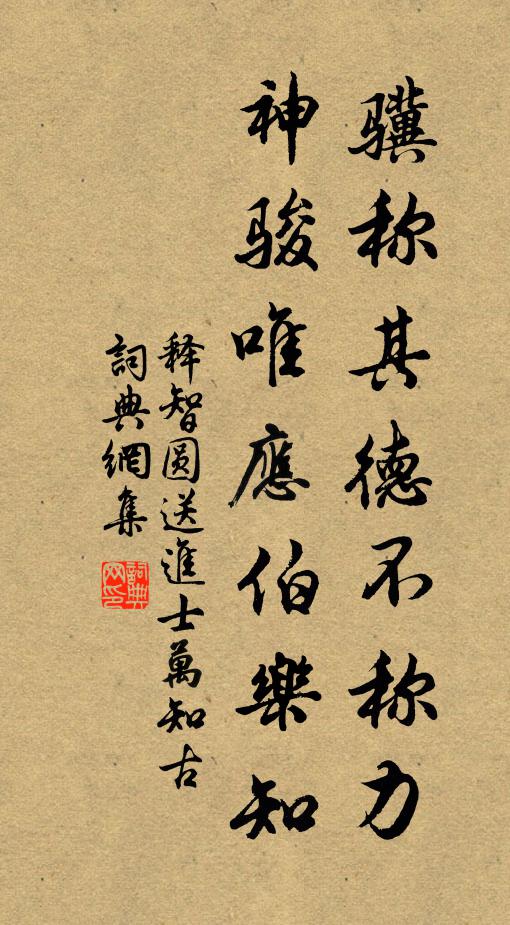 骥称其德不称力
神骏唯應伯樂知
释智圆送進士萬知古
詞典網集
詞典网印